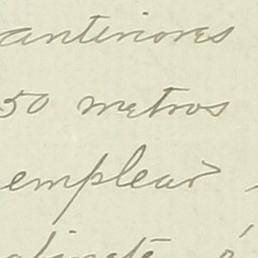 anteriores
50 metros
emplear